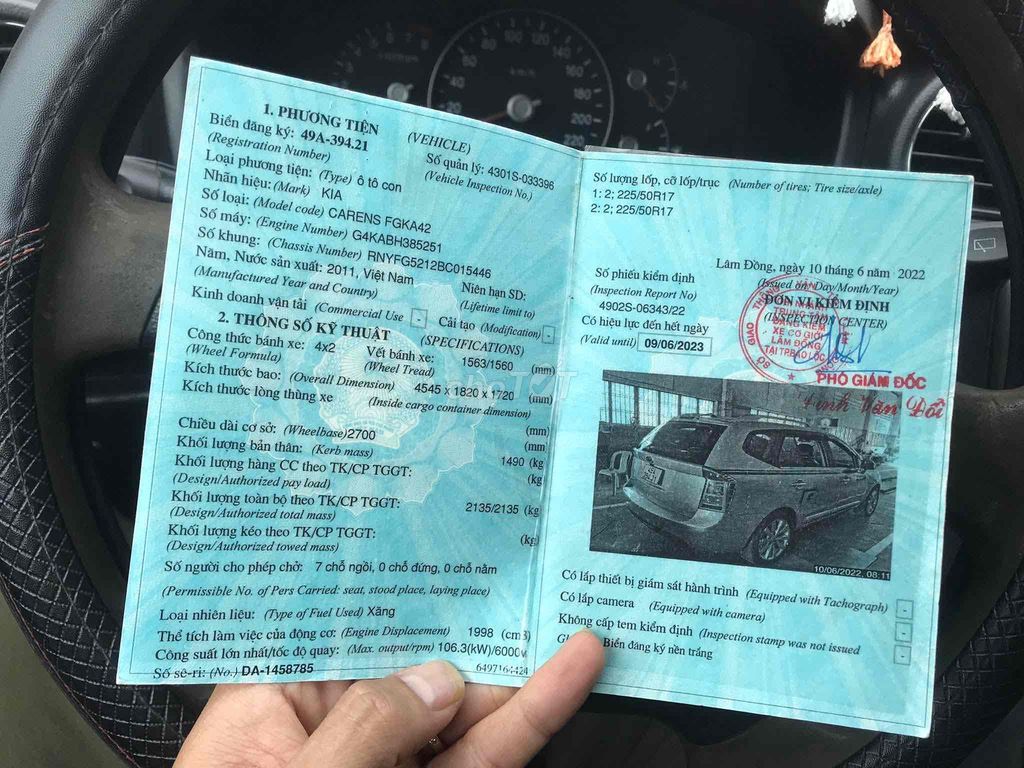 1. PHƯƠNG TIỆN (VEHICLE)
Biển đăng ký: 49A-394.21
(Registration Number)
Số quản lý: 4301S-033396
(Vehicle Inspection No.)
Loại phương tiện: (Type) ô tô con
Nhãn hiệu: (Mark) KIA
Số loại: (Model code) CARENS FGKA42
Số máy: (Engine Number) G4KABH385251
Số khung: (Chassis Number) RNYFG5212BC015446
Năm, Nước sản xuất: 2011, Việt Nam
(Manufactured Year and Country)
Niên hạn SD:
(Lifetime limit to)
Kinh doanh vận tải (Commercial Use) -
Cải tạo (Modification) -
2. THÔNG SỐ KỸ THUẬT (SPECIFICATIONS)
Công thức bánh xe: 4x2
(Wheel Formula)
Vết bánh xe: 1563/1560 (mm)
(Wheel Tread)
Kích thước bao: (Overall Dimension) 4545 x 1820 x 1720 (mm)
Kích thước lòng thùng xe (Inside cargo container dimension)
(mm)
Chiều dài cơ sở: (Wheelbase) 2700 (mm
Khối lượng bản thân: (Kerb mass) 1490 (kg
Khối lượng hàng CC theo TK/CP TGGT: (kg
(Design/Authorized pay load)
Khối lượng toàn bộ theo TK/CP TGGT: 2135/2135 (kg)
(Design/Authorized total mass)
Khối lượng kéo theo TK/CP TGGT: (kg)
(Design/Authorized towed mass)
Số người cho phép chở: 7 chỗ ngồi, 0 chỗ đứng, 0 chỗ nằm
(Permissible No. of Pers Carried: seat, stood place, laying place)
Loại nhiên liệu: (Type of Fuel Used) Xăng
Thể tích làm việc của động cơ: (Engine Displacement) 1998 (cm3
Công suất lớn nhất/tốc độ quay: (Max. output/rpm) 106.3(kW)/6000v
Số sê-ri: (No.) DA-1458785
6497164424
Số lượng lốp, cỡ lốp/trục (Number of tires; Tire size/axle)
1: 2; 225/50R17
2: 2; 225/50R17
Lâm Đồng, ngày 10 tháng 6 năm 2022
(Issued on Day/Month/Year)
Số phiếu kiểm định
(Inspection Report No)
4902S-06343/22
ĐƠN VỊ KIỂM ĐỊNH
(INSPECTION CENTER)
Có hiệu lực đến hết ngày
(Valid until) 09/06/2023
TRUNG TÂM
ĐĂNG KIỂM
XE CƠ GIỚI
LÂM ĐỒNG
TẠI TP.BẢO LỘC
PHÓ GIÁM ĐỐC
Đinh Văn Đổi
10/06/2022, 08:11
Có lắp thiết bị giám sát hành trình (Equipped with Tachograph) -
Có lắp camera (Equipped with camera) -
Không cấp tem kiểm định (Inspection stamp was not issued -
Biển đăng ký nền trắng